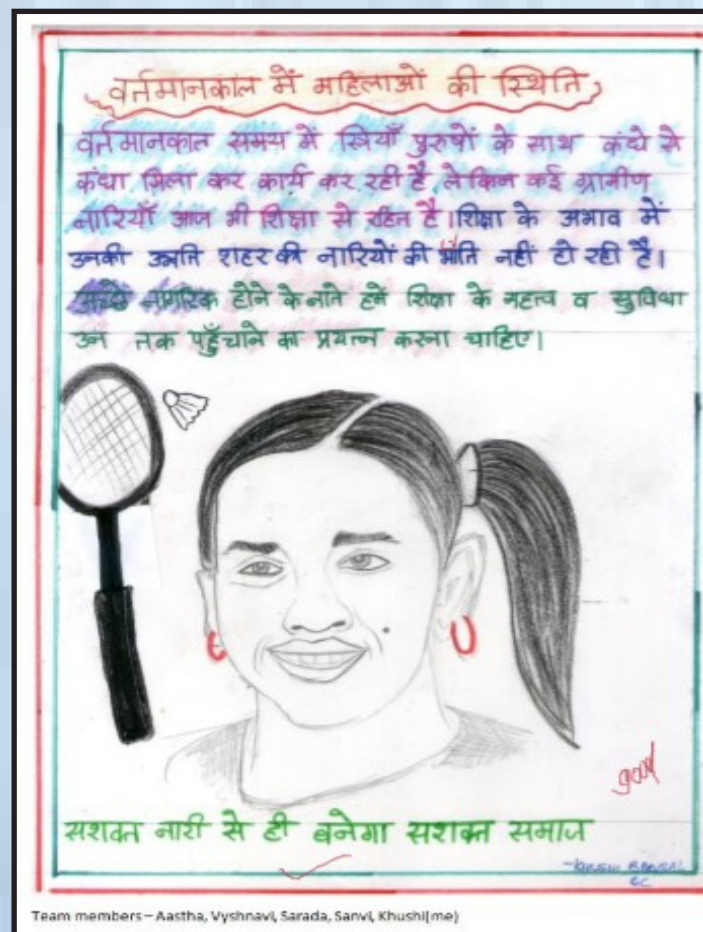 वर्तमानकाल में महिलाओं की स्थिति
वर्तमानकाल समय में स्त्रियाँ पुरुषों के साथ कंधे से
कंधा मिला कर कार्य कर रही है, लेकिन कई ग्रामीण
नारियाँ आज भी शिक्षा से रहित है। शिक्षा के अभाव में
उनकी उन्नति शहर की नारियों की भाँति नहीं हो रही है।
अच्छे नागरिक होने के नाते हमें शिक्षा के महत्व व सुविधा
उन तक पहुँचाने का प्रयत्न करना चाहिए।
good
सशक्त नारी से ही बनेगा सशक्त समाज
-KHUSHI BANSAL
6C
Team members – Aastha, Vyshnavi, Sarada, Sanvi, Khushi(me)